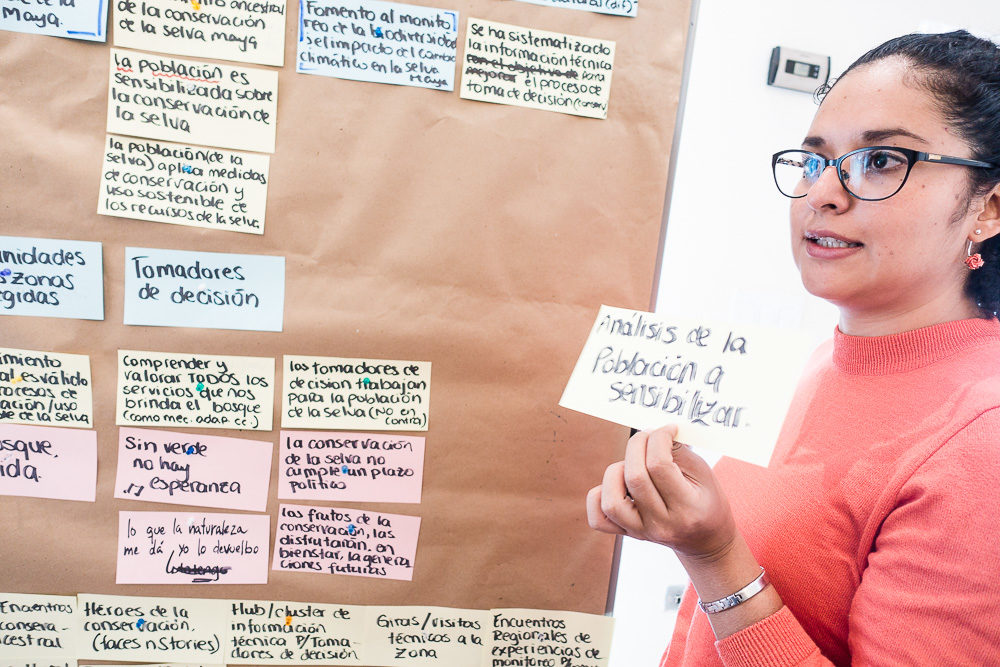 de la
Maya.
ancestral
de la conservación
de la selva maya
Fomento al monito
reo de la biodiversidad
y el impacto del cambio
climático en la selva
Maya
Se ha sistematizado
la información técnica
con el objetivo de para
mejorar el proceso de
toma de decisión (conserv)
la población es
sensibilizada sobre
la conservación de
la selva
la población (de la
selva) aplica medidas
de conservación y
uso sostenible de
los recursos de la selva
nidades
zonas
egidas
Tomadores
de decisión
imiento
al es válido
rocesos de
ación/uso
ble de la selva
Comprender y
valorar TODOS los
servicios que nos
brinda el bosque
(como mec. adap. cc.)
los tomadores de
decision trabajan
para la población
de la selva (No en
contra)
osque.
ida.
Sin verde
no hay
esperanza
la conservación
de la selva no
cumple un plazo
político
lo que la naturaleza
me dá, yo lo devuelbo
los frutos de la
conservación, las
disfrutarán, en
bienstar, la genera
ciones futuras
Análisis de la
Población a
sensibilizar.
Encuentros
conserva-
ncestral
Héroes de la
conservación.
(faces n Stories)
Hub/cluster de
información
técnica P/Toma-
dores de decisión
Giras/visitas
técnicas a la
zona
Encuentros
Regionales de
experiencias de
monitoreo P/